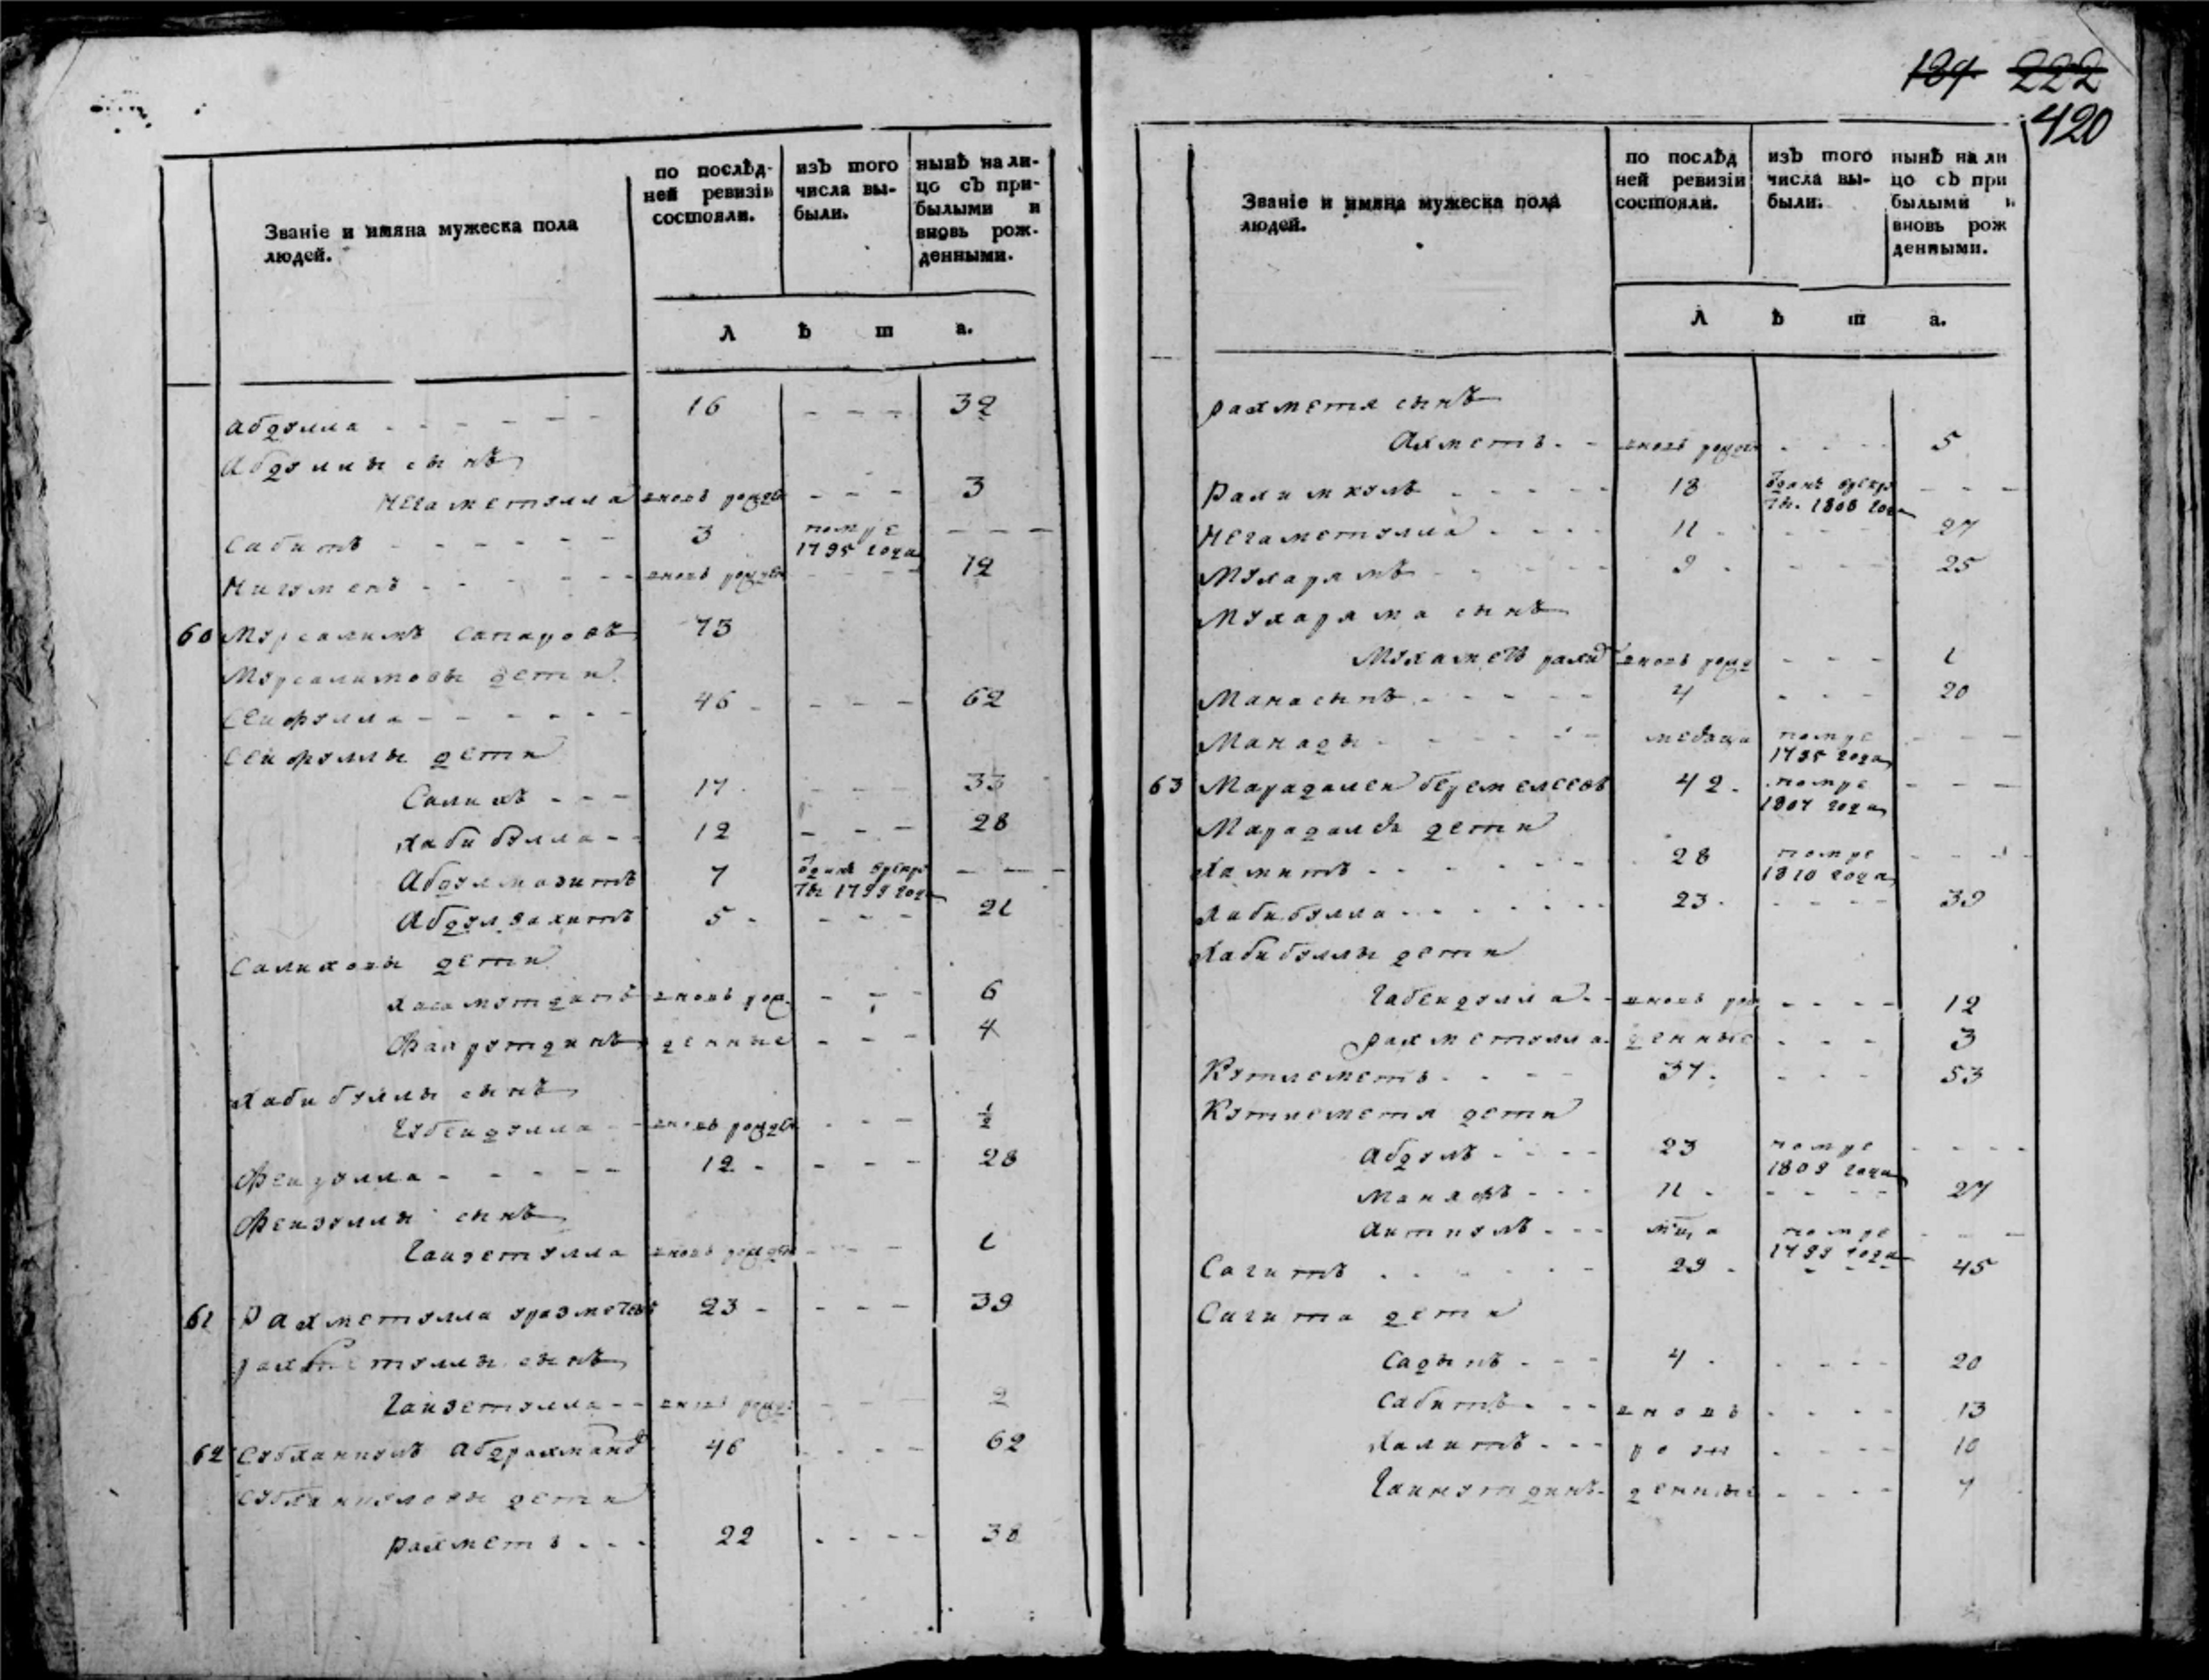 Званіе и имяна мужеска пола
людей.
по послѣд-
ней ревизіи
состояли.
изъ того
числа вы-
были.
нынѣ на ли-
цо съ при-
былыми и
вновь рож-
денными.
Л ѣ т а.
Абдулла - - - - - - 16 - - - 32
Абдуллы сынъ
Негаметулла вновь рожде - - - 3
Сабитъ - - - - - - 3 помре 1795 года - - -
Нигуменъ - - - - - - вновь рожде - - - - 12
60 Мурсалимъ Сапаровъ 73
Мурсалимовы дети
Сейфулла - - - - - - 46 - - - - 62
Сейфуллы дети
Салихъ - - - 17 - - - 33
Хабибулла - - 12 - - - 28
Абдулмазитъ 7 отданъ врекру ты 1799 года - - -
Абдулвахитъ 5 - - - - 21
Салиховы дети
Хасамутдинъ вновь рож - - - 6
Фахрутдинъ денные - - - 4
Хабибуллы сынъ
Губейдулла - вновь рожде - - - ½
Фейзулла - - - - - 12 - - - - 28
Фейзуллы сынъ
Гайзетулла вновь рожден - - - 1
61 Рахметулла Уразметевъ 23 - - - - 39
Рахметуллы сынъ
Гайзетулла - - вновь рожде - - - 2
62 Субханкулъ Абдрахмановъ 46 - - - - 62
Субханкуловы дети
Рахметъ - - - 22 - - - - 38
189 222
420
Званіе и имяна мужеска пола
людей.
по послѣд
ней ревизіи
состояли.
изъ того
числа вы-
были.
нынѣ на ли
цо съ при
былыми и
вновь рож
денными.
Л ѣ т а.
Рахметя сынъ
Ахметъ - - вновь рожде - - - - 5
Рахимкулъ - - - - - 18 отданъ врекру ты 1806 года - - -
Негаметулла - - - - 11 - - - - 27
Мухарямъ - - - - - 9 - - - - 25
Мухаряма сынъ
Мухаметъ рахи вновь рожд - - - 1
Манасыпъ - - - - - 4 - - - 20
Манады - - - - - - месяца помре 1795 года - - -
63 Марадалей Беремелеевъ 42 - помре 1807 года - - -
Марадалъ дети
Хамитъ - - - - - - 28 помре 1810 года - - -
Хабибулла - - - - - - 23 - - - - - 39
Хабибуллы дети
Габейдулла - - вновь рож - - - - 12
Рахметулла - денные - - - 3
Кутлеметъ - - - - 37 - - - - 53
Кутлеметя дети
Абдулъ - - - - 23 помре 1809 года - - - -
Манафъ - - - 11 - - - - - 27
Аиткулъ - - - мца помре 1799 года - - -
Сагитъ - - - - - - 29 - - - - 45
Сагита дети
Садыкъ - - - 4 - - - - - 20
Сабитъ - - - вновь - - - - 13
Халитъ - - - рож - - - - 10
Гайнутдинъ - денные - - - - 7